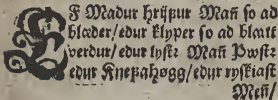 EF Madur hrijtur Mañ so ad
blæder/edur klyper so ad blatt
verdur/edur lystr Mañ Pwstr
edur Kneßahøgg/edur ryskiast
Meñ/